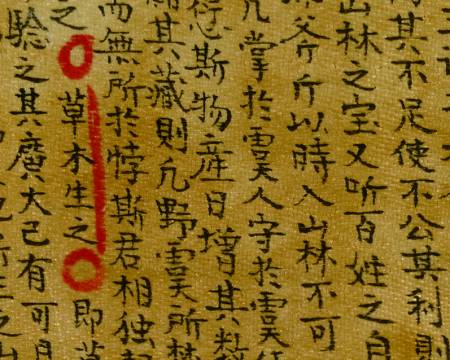 其不足使不公其利則
山林之宝又听百姓之自
斧斤以時入山林不可
凡掌於虞人字於虞
斯物産日增其
其藏則凡野虞所
而無所於悖斯君相独
之草木生之即草
驗之其廣大己有可見